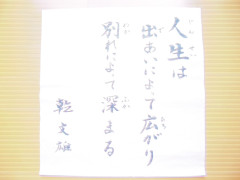 人生は
出あいによって広がり
別れによって深まる
乾文雄